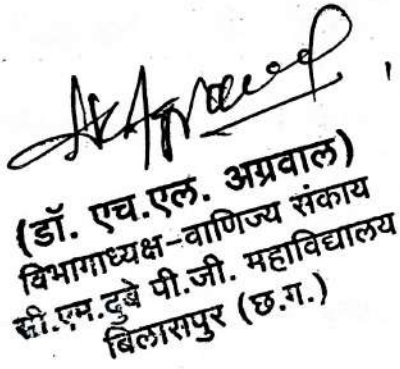 (डॉ. एच.एल. अग्रवाल)
विभागाध्यक्ष-वाणिज्य संकाय
सी.एम.दुबे पी.जी. महाविद्यालय
बिलासपुर (छ.ग.)